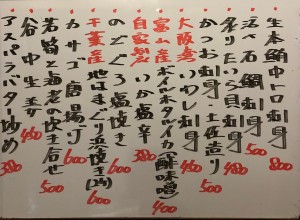 生本鮪中トロ刺身 800
活〆石鯛刺身 500
炙りたいら貝刺身 480
かつお刺身・土佐造り 500
大阪湾 いわし刺身 450
富山産 ボイルホタルイカ酢味噌 400
自家製 いか塩辛 380
のどぐろ塩焼き 600
千葉産 地はまぐり浜焼き(2ヶ) 600
カサゴ唐揚げ 600
若筍と海老の炊き合せ 500
谷中生姜 450
アスパラバタ炒め 380